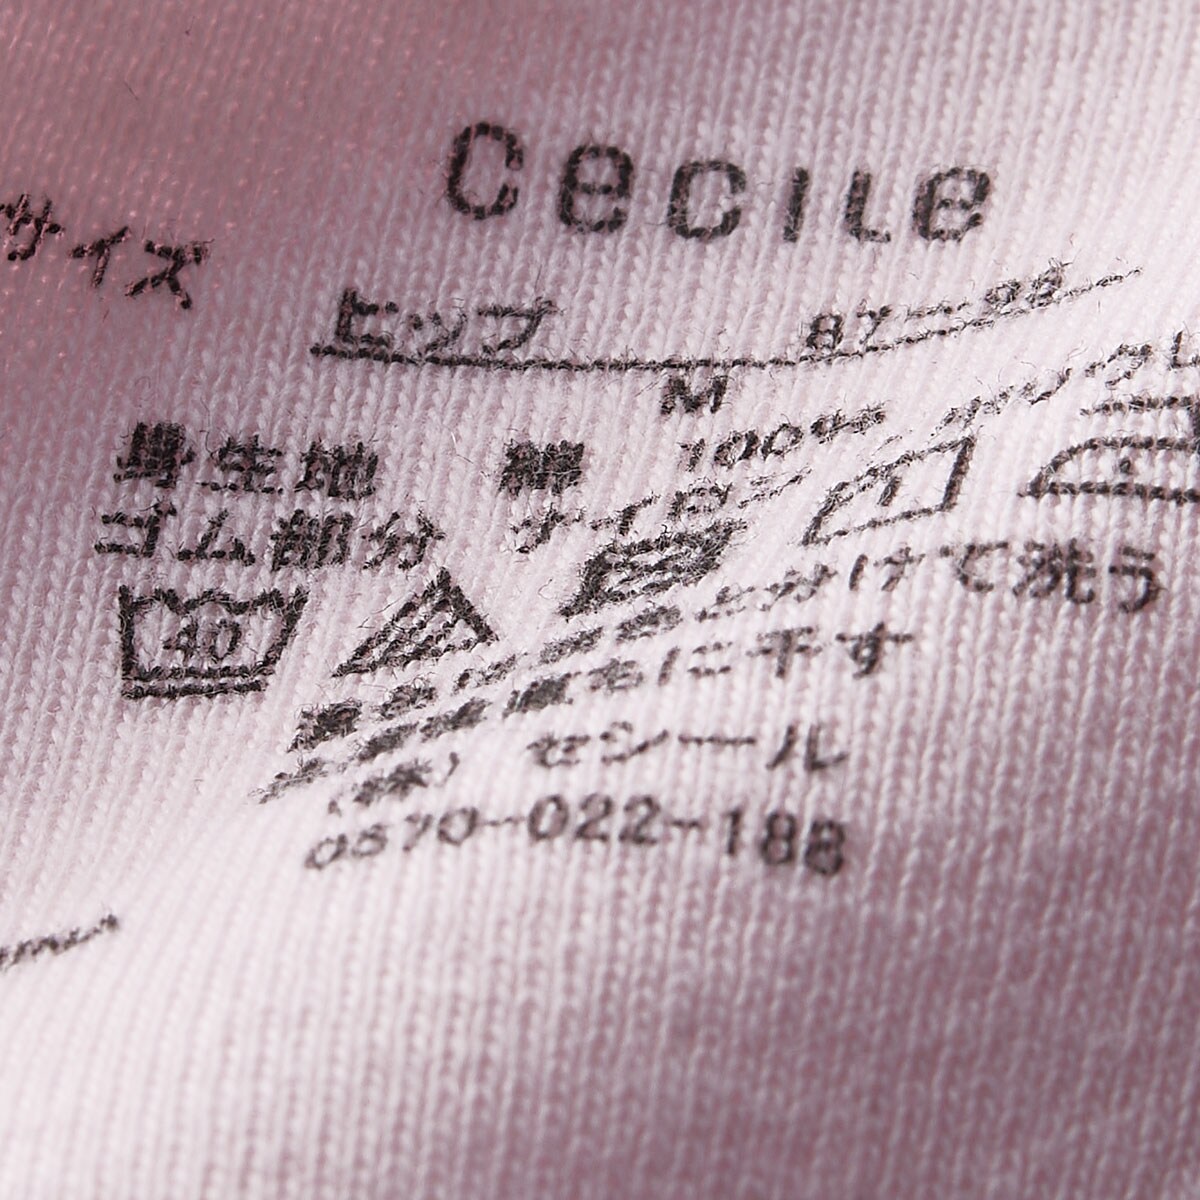 Cecile
サイズ
ヒップ 87—95
M
身生地 綿 100%
ゴム部分 ナイロン
40
白物と分けて洗う
に干す
(株) セシール
0570-022-188